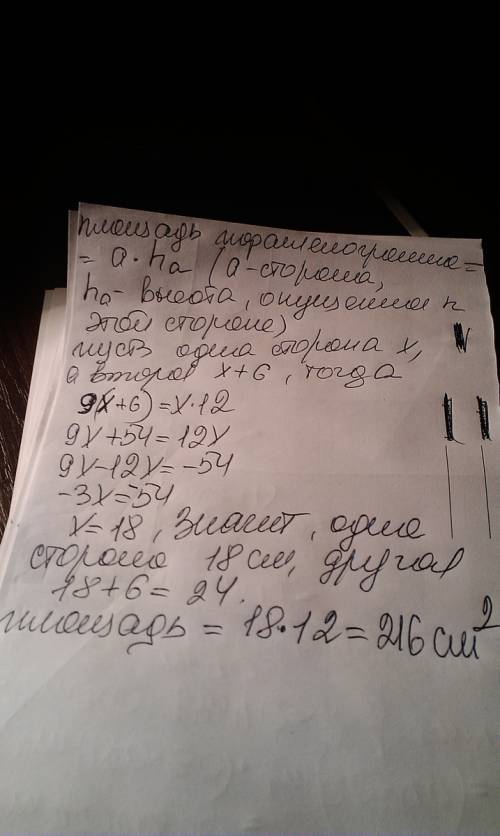 площадь параллелограмма =
= a · hₐ (a - сторона,
hₐ - высота, опущенная к
этой стороне)
пусть одна сторона x,
а вторая x+6, тогда
9(x+6)=x·12
9x+54=12x
9x-12x=-54
-3x=-54
x=18, значит, одна
сторона 18 см, другая
18+6=24.
площадь = 18·12=216 см²